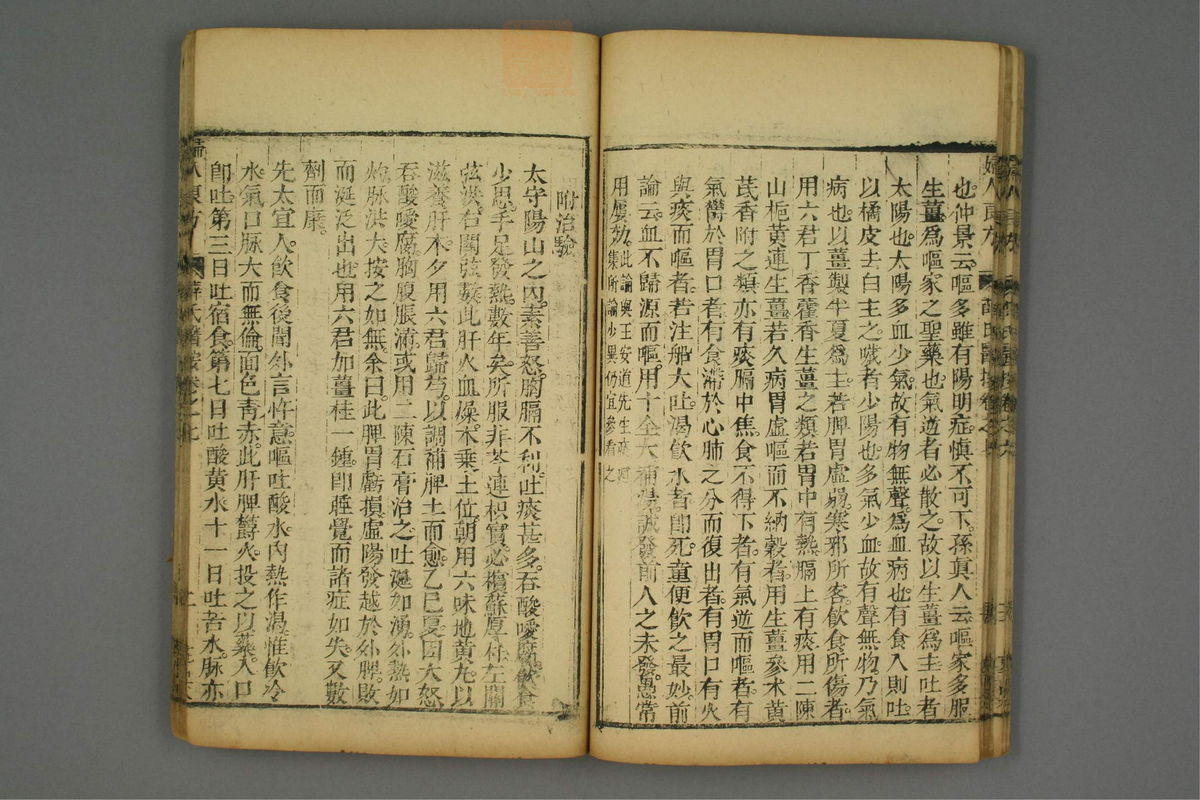 婦人良方
也仲景云嘔多雖有陽明症慎不可下孫真人云嘔家多服
生薑為嘔家之聖藥也氣逆者必散之故以生薑為主吐者
太陽也太陽多血少氣故有物無聲為血病也有食入則吐
以橘皮去白主之噦者少陽也多氣少血故有聲無物乃氣
病也以薑製半夏為主若脾胃虛弱寒邪所客飲食所傷者
用六君丁香藿香生薑之類若胃中有熱膈上有痰用二陳
山梔黃連生薑若久病胃虛嘔而不納穀者用生薑參朮黃
芪香附之類亦有痰膈中焦食不得下者有氣逆而嘔者有
氣鬱於胃口者有食滯於心肺之分而復出者有胃口有火
與痰而嘔者若注船大吐渴飲水者即死童便飲之最妙前
論云血不歸源而嘔用十全大補湯誠發前人之未發愚常
用屢効此論與王安道先生
集所論少異仍宜參看之
附治驗
太守陽山之內素善怒胷膈不利吐痰甚多吞酸噯腐飲食
少思手足發熱數年矣所服非芩連枳實必檳蘇厚朴左關
弦洪右關弦數此肝火血燥木乘土位朝用六味地黃丸以
滋養肝木夕用六君歸芍以調補脾土而愈乙巳夏因大怒
吞酸噯腐胸腹脹滿或用二陳石膏治之吐涎如湧外熱如
灼脉洪大按之如無余曰此脾胃虧損虛陽發越於外脾敗
而涎泛出也用六君加薑桂一鍾即睡覺而諸症如失又數
劑而康
先太宜人飲食後聞外言忤意嘔吐酸水內熱作渴惟飲冷
水氣口脉大而無倫面色青赤此肝脾鬱火投之以藥入口
即吐第三日吐宿食第七日吐酸黃水十一日吐苦水脉亦
婦人良方 薛氏醫案卷之十七